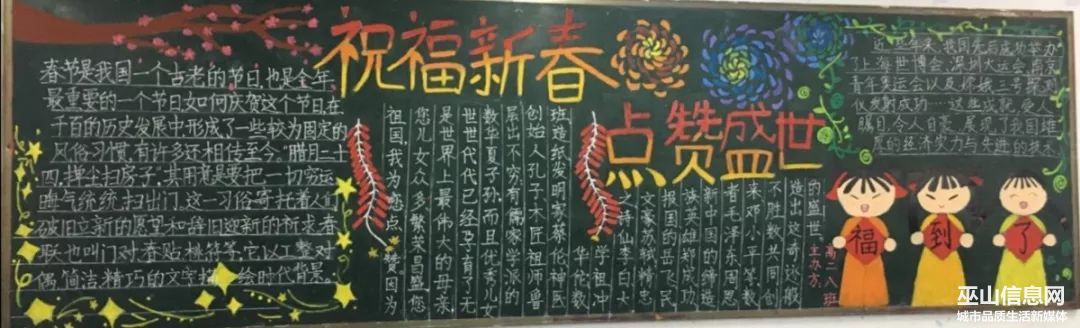 祝福新春
点赞盛世
春节是我国一个古老的节日,也是全年
最重要的一个节日,如何庆贺这个节日,在
千百的历史发展中,形成了一些较为固定的
风俗习惯,有许多还相传至今。"腊月二十
四,掸尘扫房子",其用意是要把一切穷运
晦气统统扫出门。这一习俗寄托着人们
破旧立新的愿望和辞旧迎新的祈求。春
联也叫门对春贴等等,它以工整对
偶、简洁精巧的文字描绘时代背景
祖国,我为您点赞因为
您儿女众多繁荣昌盛您
是世界上最伟大的母亲
世世代代已经孕育了无
数华夏子孙而且优秀儿女
层出不穷有儒家学派的
创始人孔子木匠祖师鲁
班造纸发明家蔡伦神医
华佗数
学祖冲
之诗仙李白大
文豪苏轼精忠
报国的岳飞民
族英雄郑成功
新中国的缔造
者毛泽东周恩
来邓小平等数
不胜数共同创
造出这奇迹般
的盛世!
主办方:
高二八班
近些年来,我国先后成功举办
了上海世博会,深圳大运会,南京
青年奥运会以及嫦娥三号探测
仪发射成功……这些成就,受人
瞩目,令人自豪,展现了我国雄
厚的经济实力与先进的技术
福
到
了
巫山信息网
城市品质生活新媒体